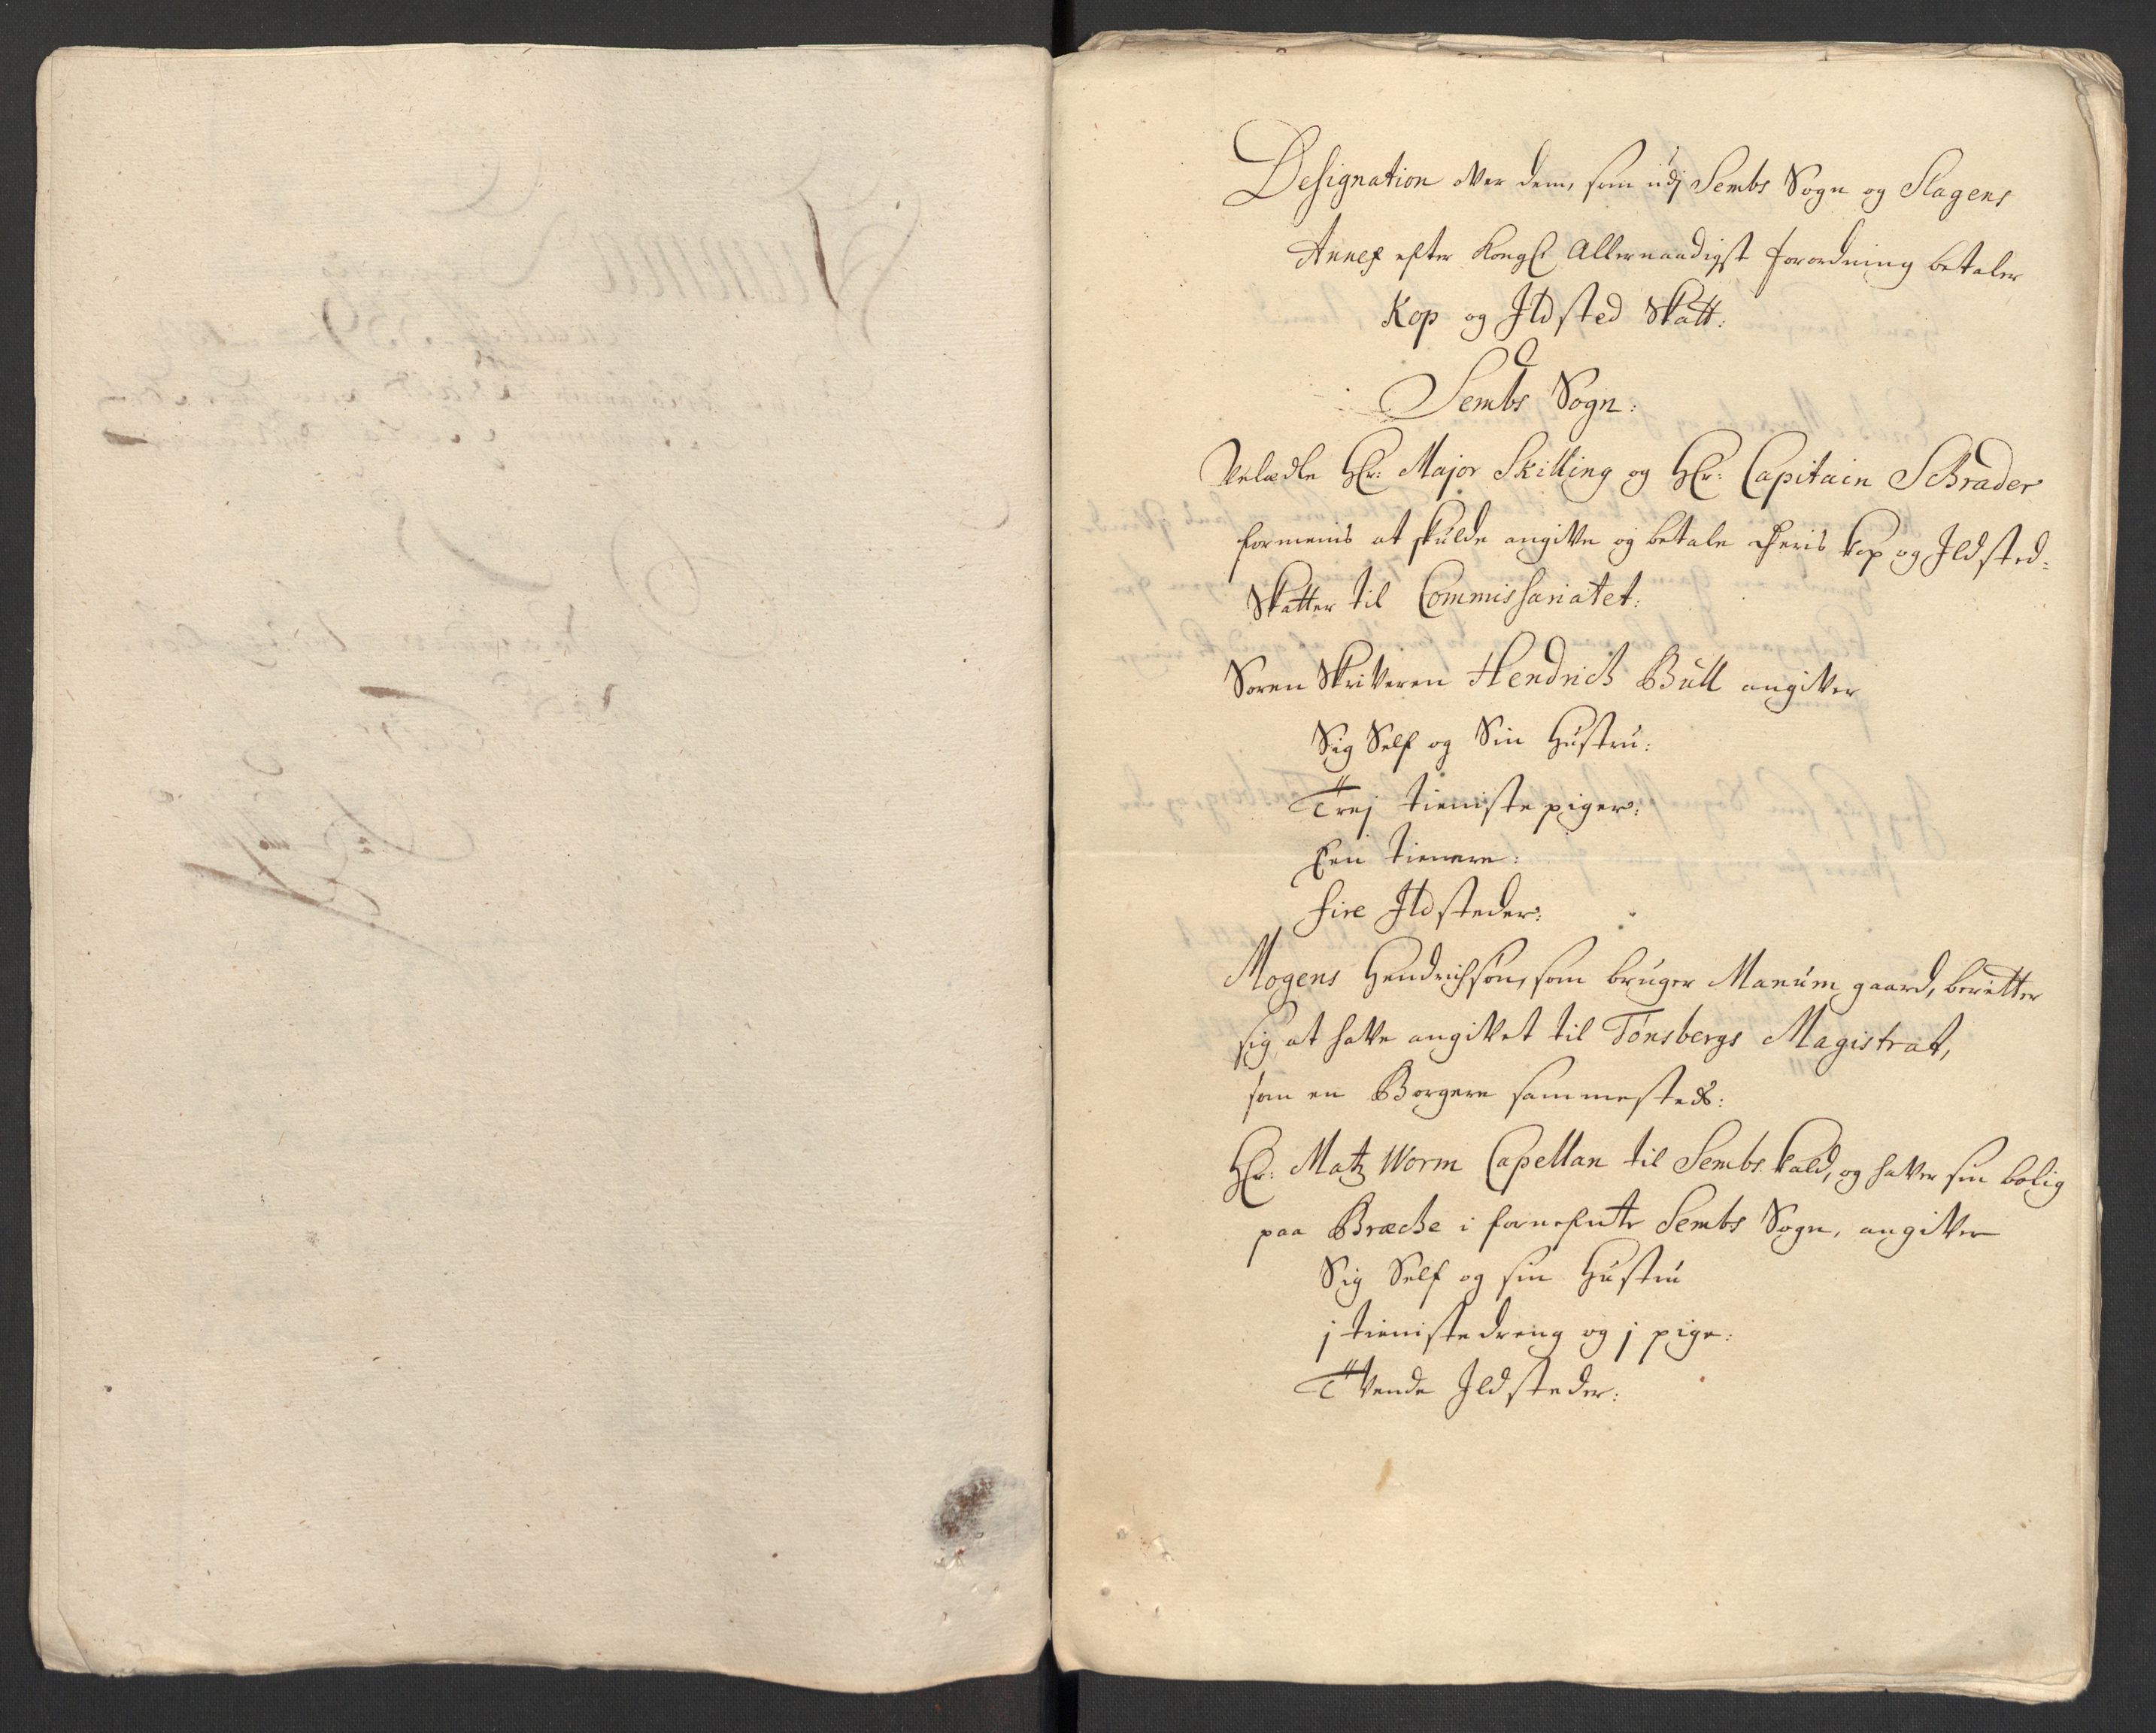 Designation over dem, som udj Sembs Sogn og Slagens
Annex efter Kongl Allernaadigst forordning betaler
Kop og Ildsted Skatt:
Sembs Sogn:
Velædle Hr: Major Skilling og Hr: Capitain SChrader
formenis at skulde angive og betale deris kop og Ildsted-
Skatter til Commissariatet:
Soren Skriveren Hendrich Bull angiver
Sig Self og Sin Hustru:
Trej tieniste piger:
Een tienere:
fire Ildsteder:
Mogens Hendrichsøn, som bruger Manum gaard, beretter
sig at have angivet til Tønsbergs Magistrat,
som en Borgere sammesteds:
Hr: Matz Worm Capellan til Sembs kald, og haver sin bolig
paa Bræche i fornefnte Sembs Sogn, angiver
Sig Self og sin Hustru
j tieniste dreng og j pige:
Tvende Ildsteder: